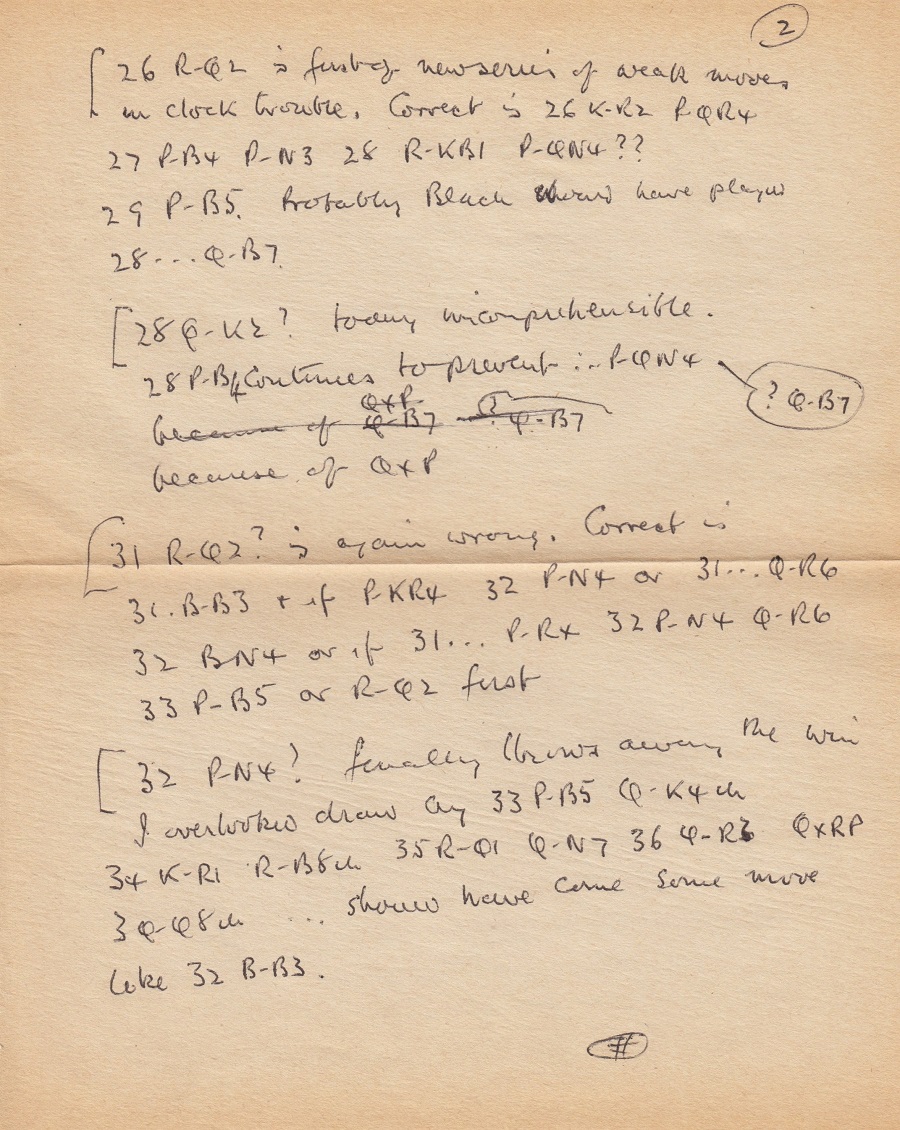 2
26 R-Q2 is first of new series of weak moves
in clock trouble. Correct is 26 K-R2 P-QR4
27 P-B4 P-N3 28 R-KB1 P-QN4??
29 P-B5. Probably Black should have played
28... Q-B7.
28 Q-K2? today incomprehensible.
28 P-B4 Continues to prevent ... P-QN4
? Q-B7
QxP
because of Q-B7 Q-B7
because of QxP
31 R-Q2? is again wrong. Correct is
31. B-B3 + if P-KR4 32 P-N4 or 31... Q-R6
32 B-N4 or if 31... P-R4 32 P-N4 Q-R6
33 P-B5 or R-Q2 first
32 P-N4? finally throws away the win
I overlooked draw by 33 P-B5 Q-K4ch
34 K-R1 R-B8ch 35 R-Q1 Q-N7 36 Q-R3 QxRP
3 Q-Q8ch ... should have come some move
like 32 B-B3.
#